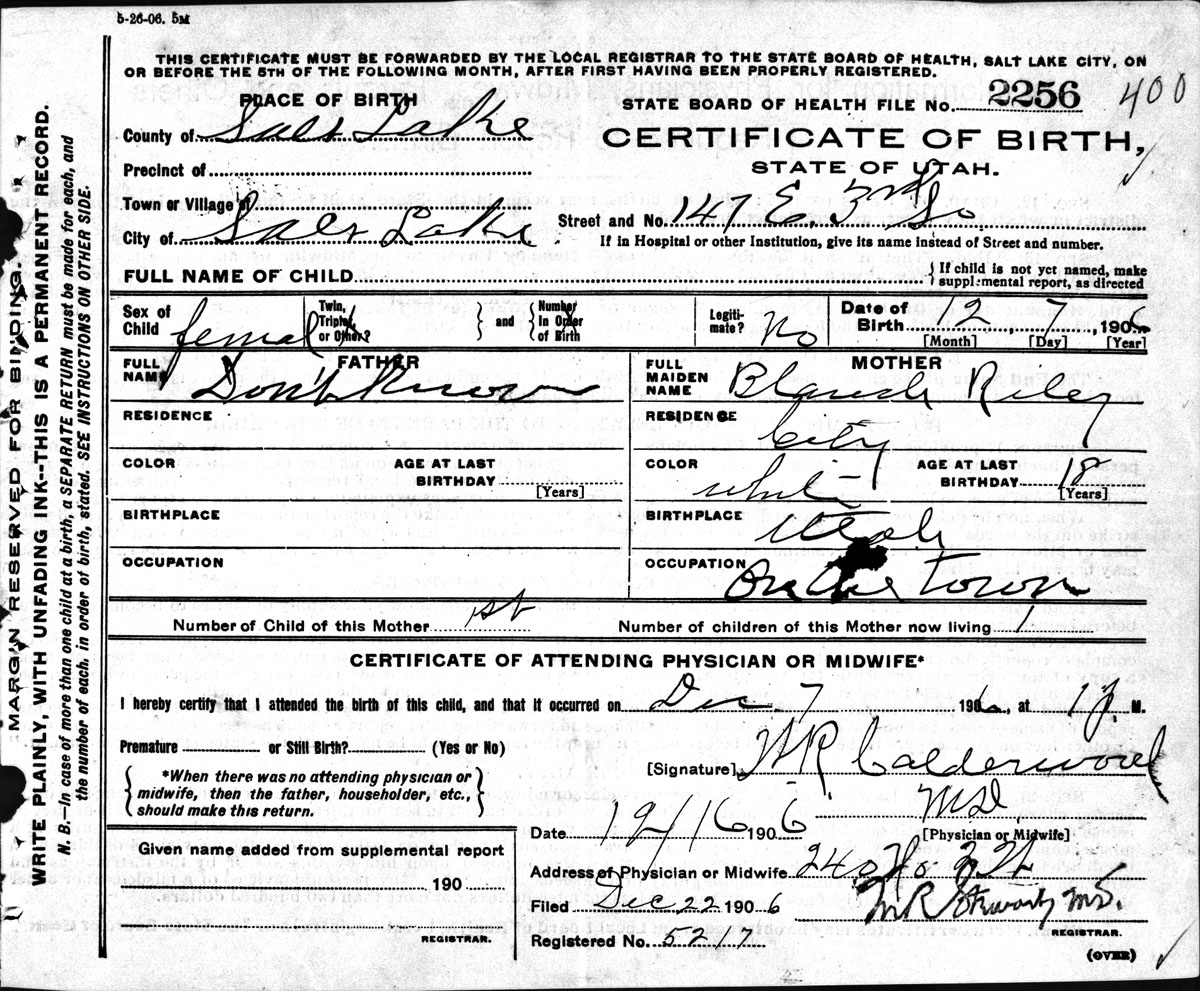 5-26-06. 5M
THIS CERTIFICATE MUST BE FORWARDED BY THE LOCAL REGISTRAR TO THE STATE BOARD OF HEALTH, SALT LAKE CITY, ON
OR BEFORE THE 5TH OF THE FOLLOWING MONTH, AFTER FIRST HAVING BEEN PROPERLY REGISTERED.
MARGIN RESERVED FOR BINDING.
WRITE PLAINLY, WITH UNFADING INK--THIS IS A PERMANENT RECORD.
N. B.—In case of more than one child at a birth, a SEPARATE RETURN must be made for each, and
the number of each, in order of birth, stated. SEE INSTRUCTIONS ON OTHER SIDE.
PLACE OF BIRTH
County of Salt Lake
Precinct of
Town or Village of
City of Salt Lake
STATE BOARD OF HEALTH FILE No. 2256 400
CERTIFICATE OF BIRTH,
STATE OF UTAH.
Street and No. 147 E. 3rd So
If in Hospital or other Institution, give its name instead of Street and number.
FULL NAME OF CHILD
If child is not yet named, make
supplemental report, as directed
Sex of Child female
Twin, Triplet or Other?
and Number In Order of Birth
Legiti-mate? No
Date of Birth 12 7 1906
[Month] [Day] [Year]
FATHER
FULL NAME Don't Know
RESIDENCE
COLOR
AGE AT LAST BIRTHDAY
[Years]
BIRTHPLACE
OCCUPATION
MOTHER
FULL MAIDEN NAME Blanch Riley
RESIDENCE City
COLOR white
AGE AT LAST BIRTHDAY 18
[Years]
BIRTHPLACE Utah
OCCUPATION On the town
Number of Child of this Mother 1st
Number of children of this Mother now living 1
CERTIFICATE OF ATTENDING PHYSICIAN OR MIDWIFE*
I hereby certify that I attended the birth of this child, and that it occurred on Dec 7 1906, at 1 p. M.
Premature or Still Birth? (Yes or No)
*When there was no attending physician or
midwife, then the father, householder, etc.,
should make this return.
[Signature] W R Calderwood
MD
[Physician or Midwife]
Date 12/16 1906
Given name added from supplemental report
190
REGISTRAR.
Address of Physician or Midwife
Filed Dec 22 1906
M.D.
REGISTRAR.
Registered No. 5217
(OVER)